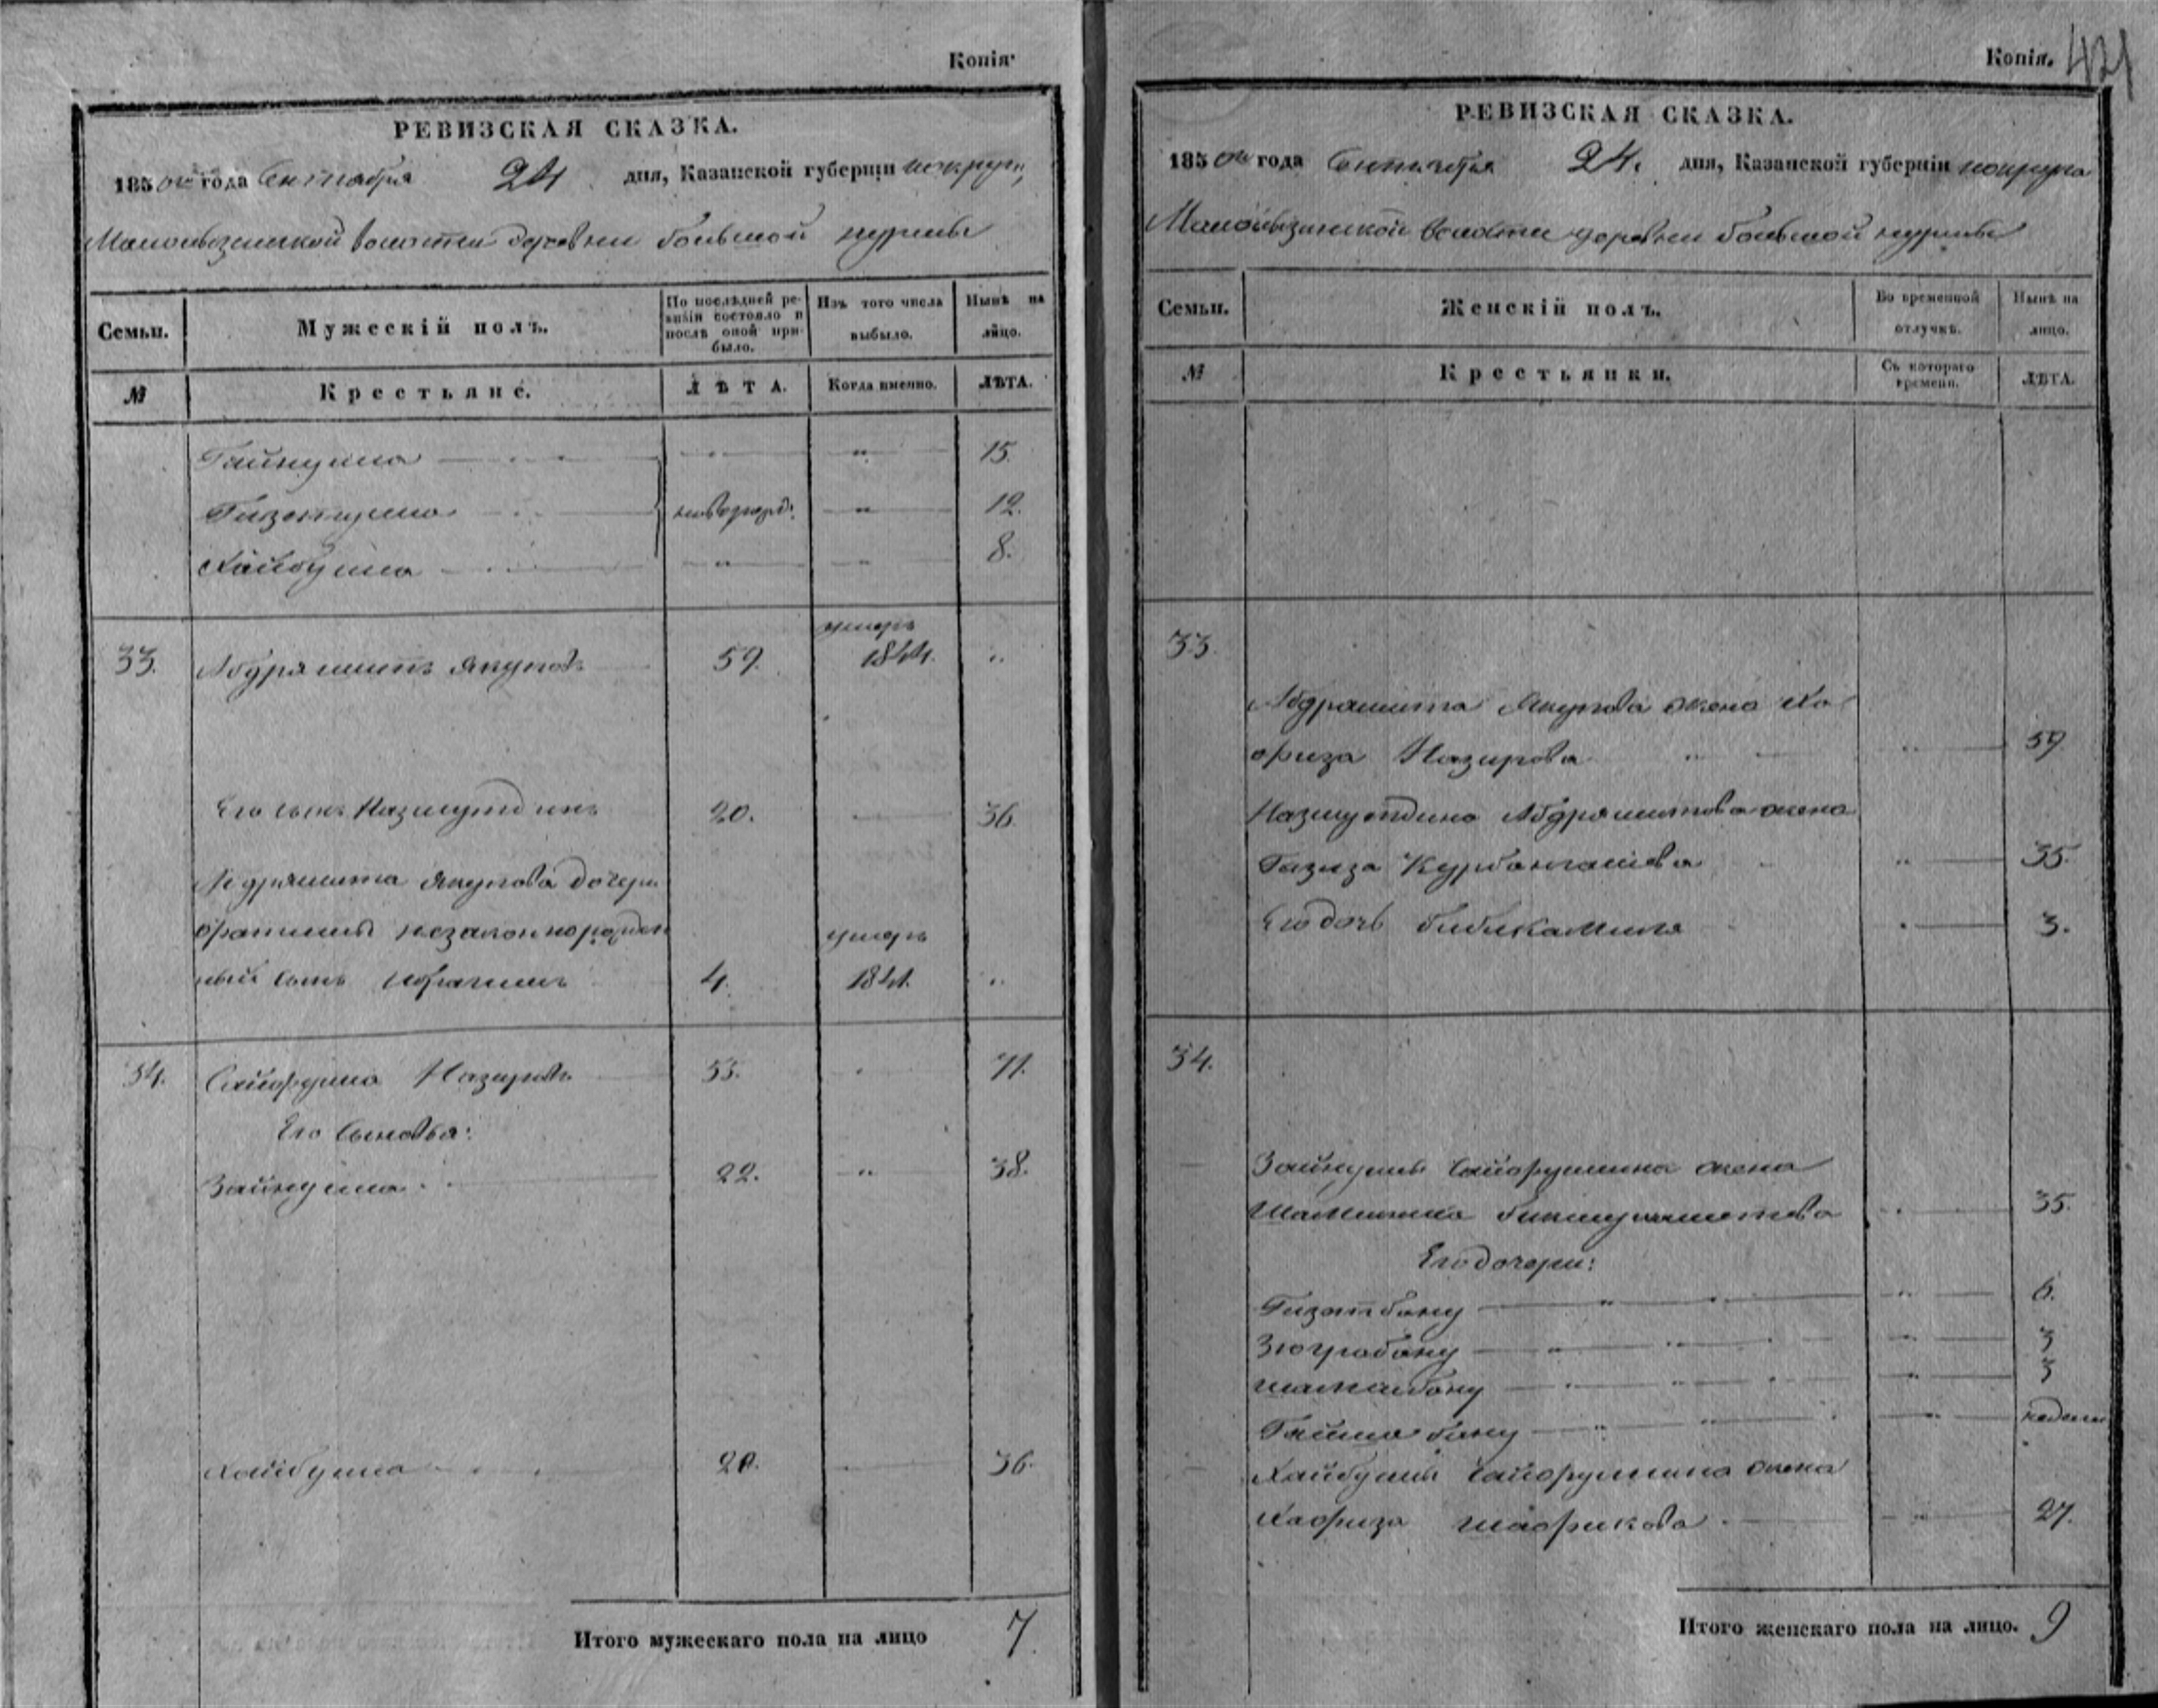 Копія
РЕВИЗСКАЯ СКАЗКА.
1850го года Сентября 24 дня, Казанской губерніи
волости деревни большой
Семьи.
Мужескій полъ.
По послѣдней ре-
визіи состояло и
послѣ оной при-
было.
Изъ того числа
выбыло.
Нынѣ на
лицо.
№
Крестьяне.
ЛѢТА.
Когда именно.
ЛѢТА.
Гайнулла 15.
Гизетулла новорожд: 12.
Хайбулла 8.
умеръ
33. Абдряшитъ Якуповъ 59. 1844.
Его сынъ Назмутдинъ 20. 36.
Абдряшита Якупова дочери
незаконнорожден умеръ
ный сынъ Ибрагимъ 4. 1841.
34. Сайфулла Назировъ 55. 71.
Его сыновья:
Зайнулла 22. 38.
Хайбулла 20. 36.
Итого мужескаго пола на лицо 7.
Копія. 421
РЕВИЗСКАЯ СКАЗКА.
1850го года Сентября 24. дня, Казанской губерніи
волости деревни большой
Семьи.
Женскій полъ.
Во временной
отлучкѣ.
Нынѣ на
лицо.
№
Крестьянки.
Съ котораго
времени.
ЛѢТА.
33.
Абдряшита Якупова жена Ха-
физа Назирова 59
Назмутдина Абдряшитова жена
Газиза Курбангалева 35.
Его дочь Бибикамиля 3.
34.
Зайнуллы Сайфуллина жена
35.
Его дочери:
Гизетбану 6.
Зюграбану 3
Шамсибану 3
бану недели
Хайбуллы Сайфуллина жена
Хафиза Шафикова 27.
Итого женскаго пола на лицо. 9